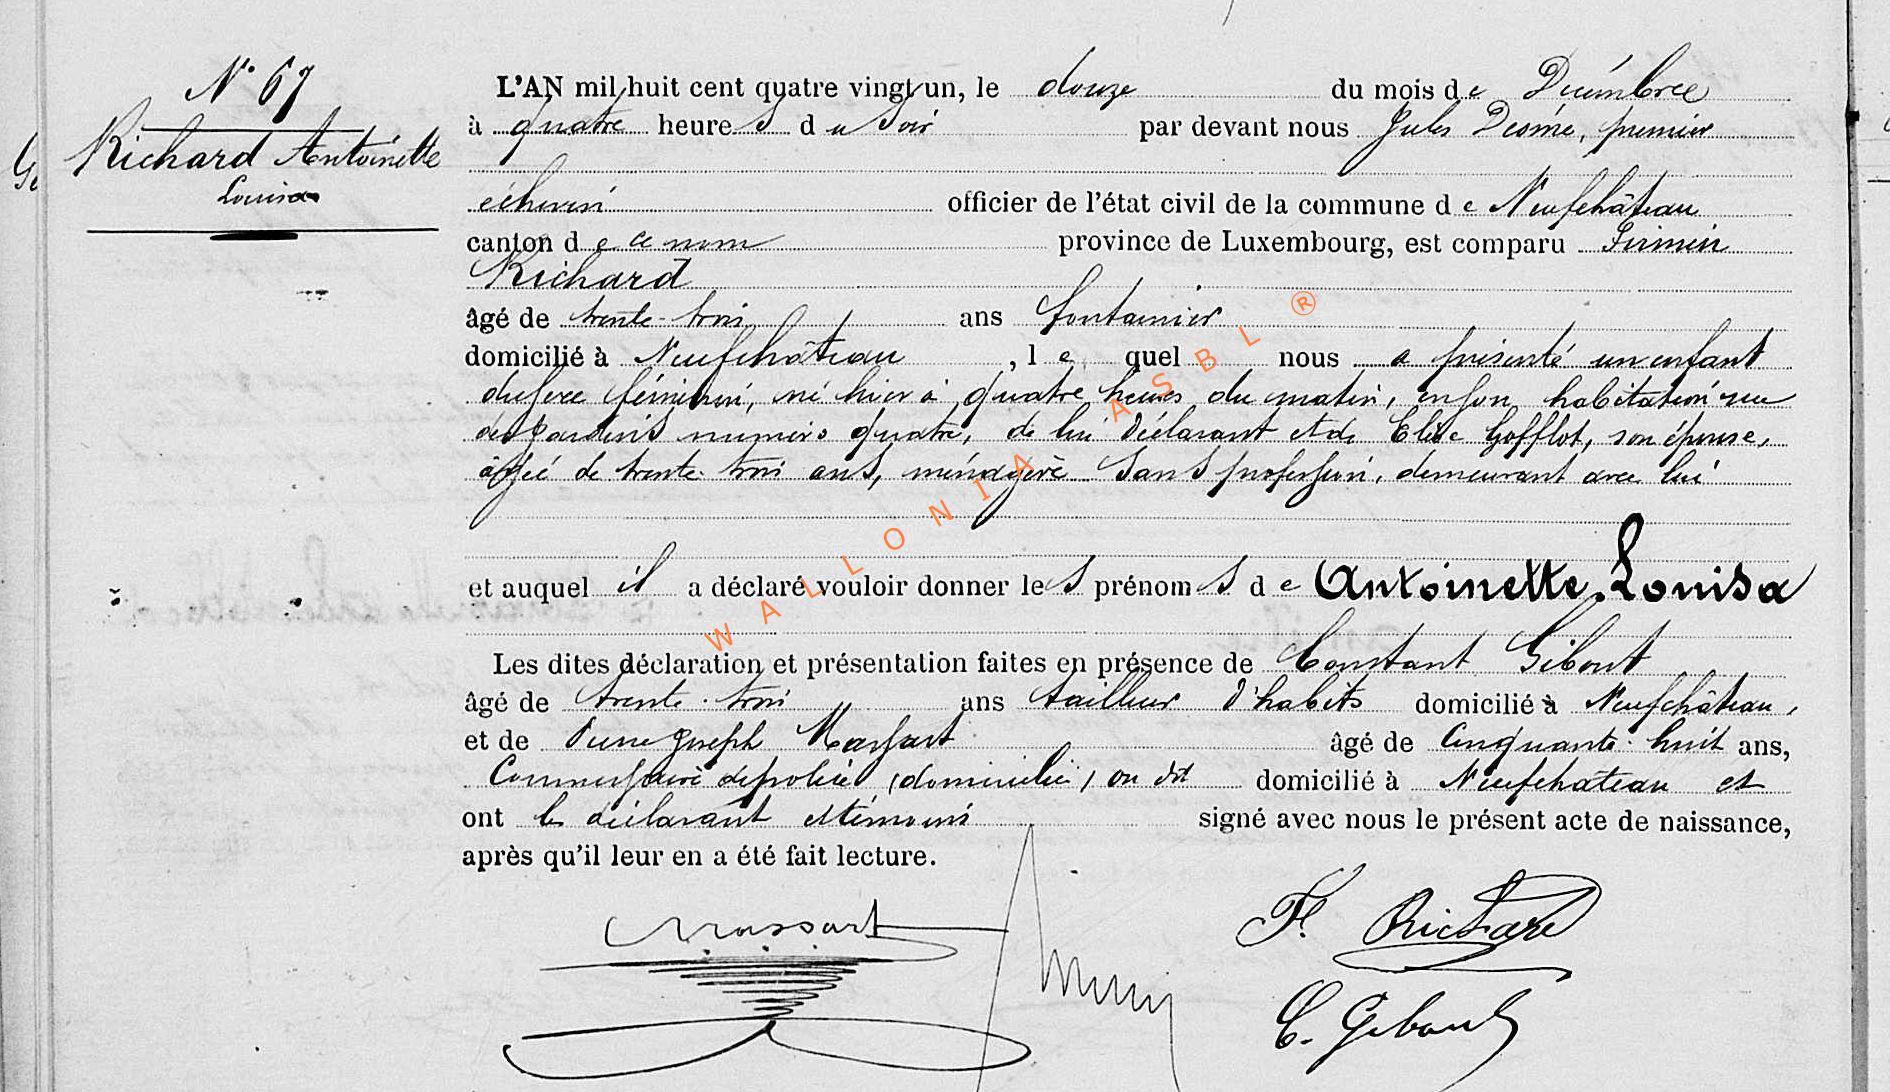 N° 67
Richard Antoinette
Louisa
L'AN mil huit cent quatre vingt un, le douze du mois de Décembre
à quatre heures du Soir par devant nous Jules premier
échevin officier de l'état civil de la commune de Neufchâteau
canton de ce nom province de Luxembourg, est comparu Firmin
Richard
âgé de trente-trois ans fontainier
domicilié à Neufchâteau, lequel nous a présenté un enfant
du sexe féminin, né hier à quatre heures du matin, en son habitation rue
des Jardins numéro quatre, de lui déclarant et de Elise Gofflot, son épouse,
âgée de trente-trois ans, ménagère Sans profession, demeurant avec lui
et auquel il a déclaré vouloir donner les prénoms de Antoinette, Louisa
Les dites déclaration et présentation faites en présence de Constant Gibout
âgé de trente-trois ans tailleur d'habits domicilié à Neufchâteau,
et de Pierre Joseph Massart âgé de Cinquante-huit ans,
Commissaire de police (domicilié) on dit domicilié à Neufchâteau et
ont le déclarant et témoins signé avec nous le présent acte de naissance,
après qu'il leur en a été fait lecture.
Massart
F. Richard
C. Gibout
WALLONIA ASBL ®